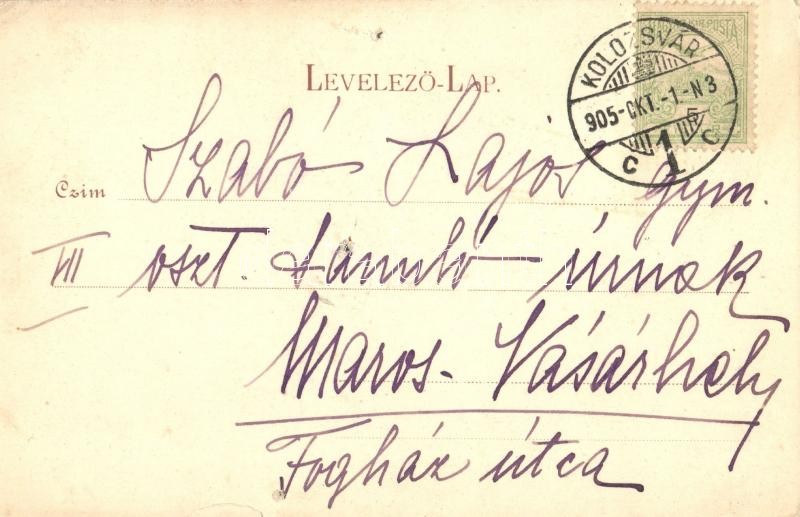 LEVELEZŐ-LAP.
KOLOZSVÁR
905-OKT.-1.-N3
C 1 C
1
5
Czim Szabó Lajos gym.
VII oszt. tanuló úrnak
Maros-Vásárhely
Fogház útca